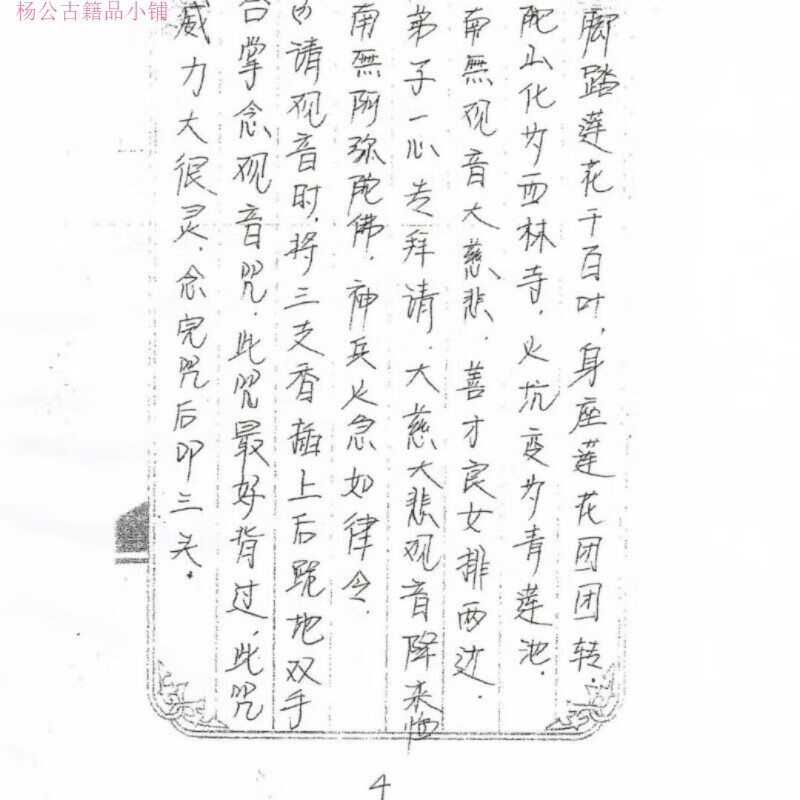 杨公古籍品小铺
脚踏莲花千百叶，身座莲花团团转．
陀山化为西林寺，火坑变为青莲池．
南無观音大慈悲．善才良女排两边．
弟子一心专拜请．大慈大悲观音降来临
南無阿弥陀佛．神兵火急如律令．
请观音时，将三支香插上后跪地双手
合掌念观音咒．此咒最好背过，此咒
威力大很灵．念完咒后叩三头．
4